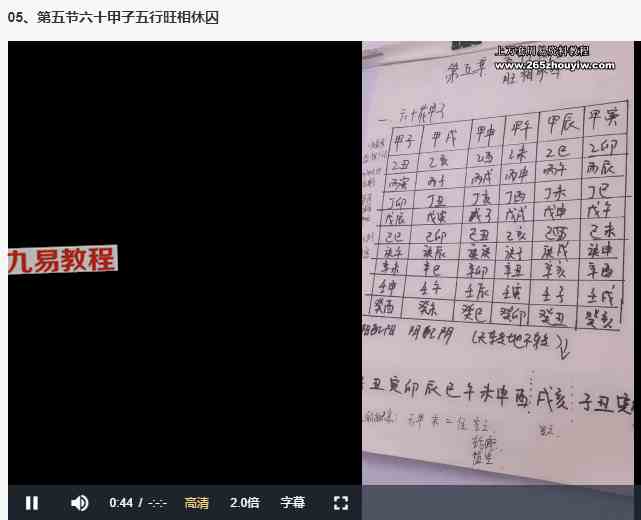 05、第五节六十甲子五行旺相休囚
上万套用易资料教程
www.265zhouyiw.com
第五章
旺相休囚
一、六十花甲子
甲子 甲戌 甲申 甲午 甲辰 甲寅
乙丑 乙亥 乙酉 乙未 乙巳 乙卯
丙寅 丙子 丙戌 丙申 丙午 丙辰
丁卯 丁丑 丁亥 丁酉 丁未 丁巳
戊辰 戊寅 戊子 戊戌 戊申 戊午
己巳 己卯 己丑 己亥 己酉 己未
庚午 庚辰 庚寅 庚子 庚戌 庚申
辛未 辛巳 辛卯 辛丑 辛亥 辛酉
壬申 壬午 壬辰 壬寅 壬子 壬戌
癸酉 癸未 癸巳 癸卯 癸丑 癸亥
阳配阳 阴配阴 (天转地不转)
丑寅卯辰巳午未申酉戌亥 子丑寅
九易教程
0:44 / -:-:- 高清 2.0倍 字幕